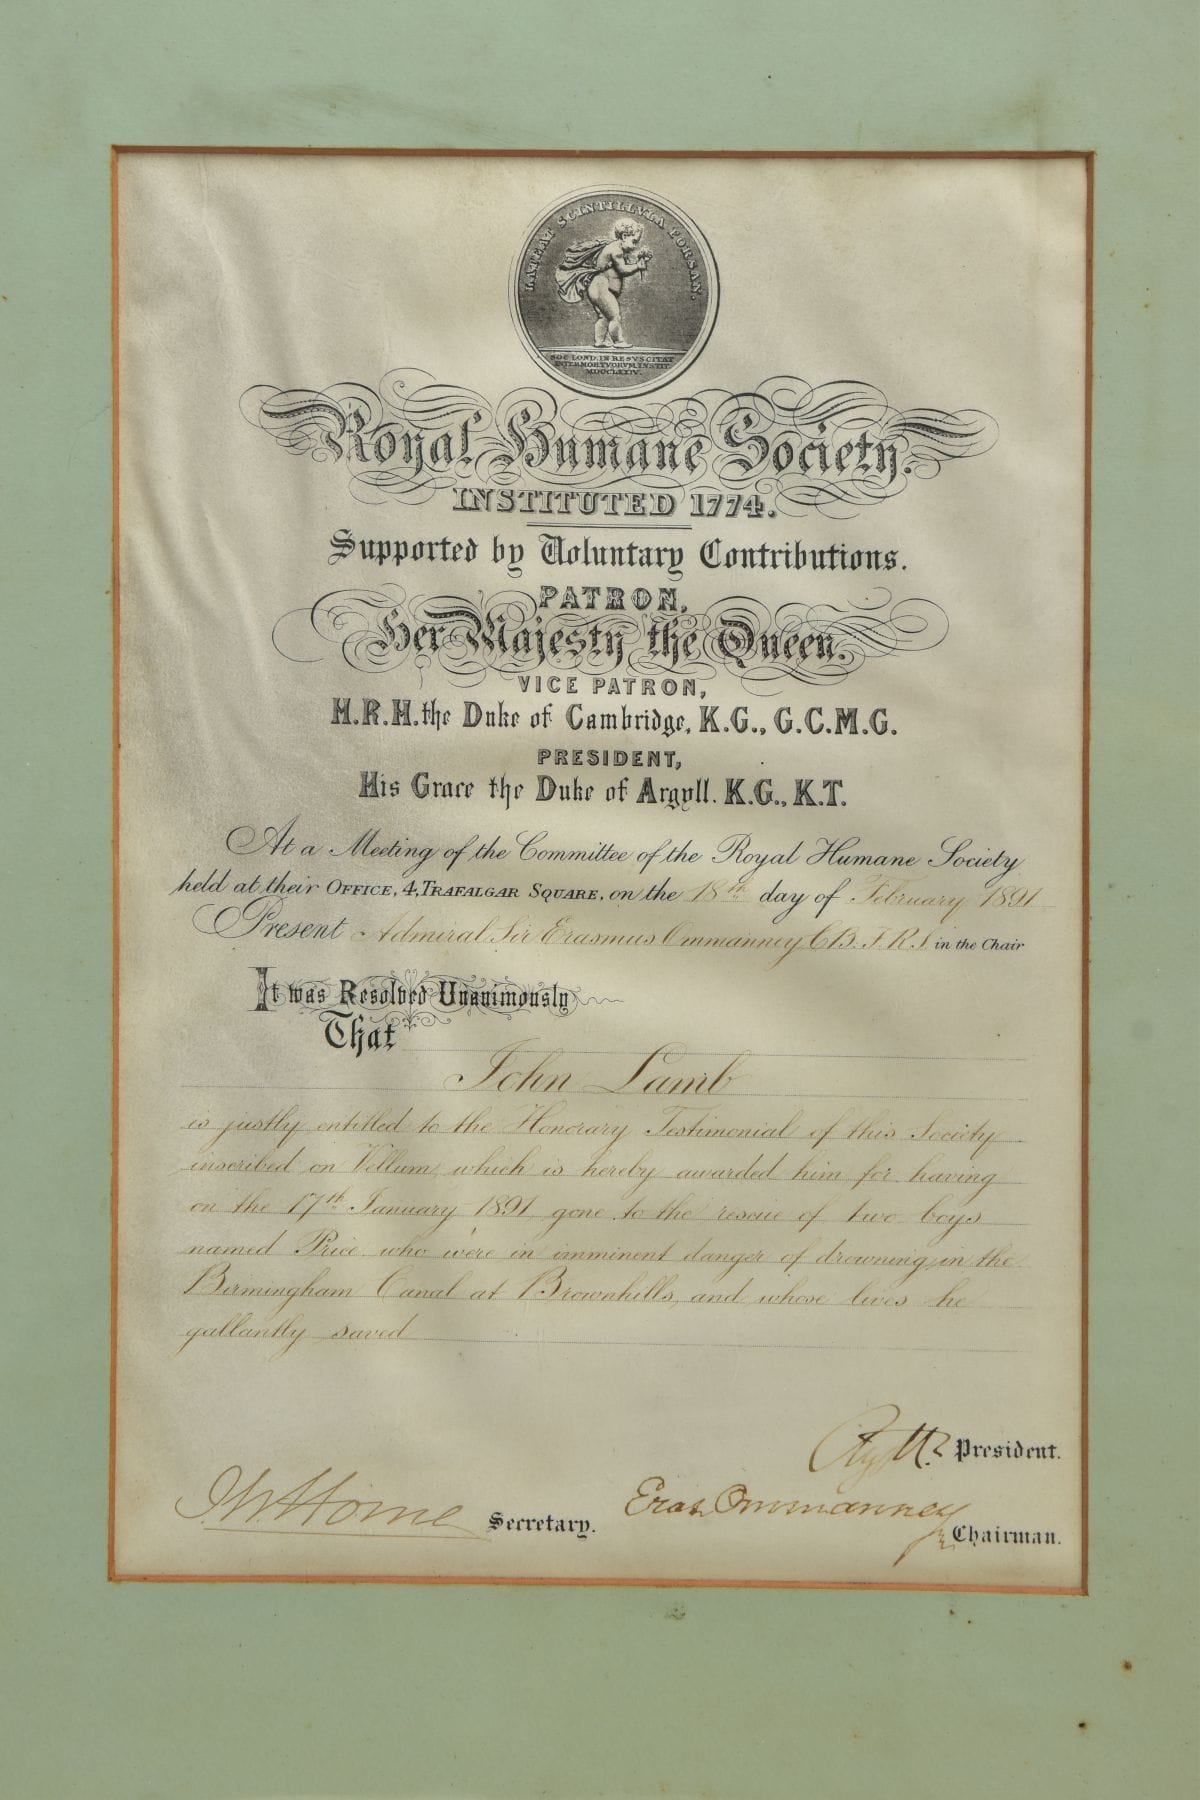 LATEAT SCINTILLVLA FORSAN.
SOC. LOND. IN RESVSCITAT
INTERMORTVORVM. INSTIT.
MDCCLXXIV.
Royal Humane Society.
INSTITUTED 1774.
Supported by Voluntary Contributions.
PATRON,
Her Majesty the Queen.
VICE PATRON,
H.R.H. the Duke of Cambridge, K.G., G.C.M.G.
PRESIDENT,
His Grace the Duke of Argyll. K.G., K.T.
At a Meeting of the Committee of the Royal Humane Society
held at their OFFICE, 4, TRAFALGAR SQUARE, on the 18th day of February 1891
Present Admiral Sir Erasmus Ommanney C.B. F.R.S. in the Chair
It was Resolved Unanimously
That
John Lamb
is justly entitled to the Honorary Testimonial of this Society
inscribed on Vellum, which is hereby awarded him for having
on the 17th January 1891, gone to the rescue of two boys
named Price who were in imminent danger of drowning in the
Birmingham Canal at Brownhills, and whose lives he
gallantly saved
Argyll President.
J. W. Horne Secretary.
Eras Ommanney Chairman.